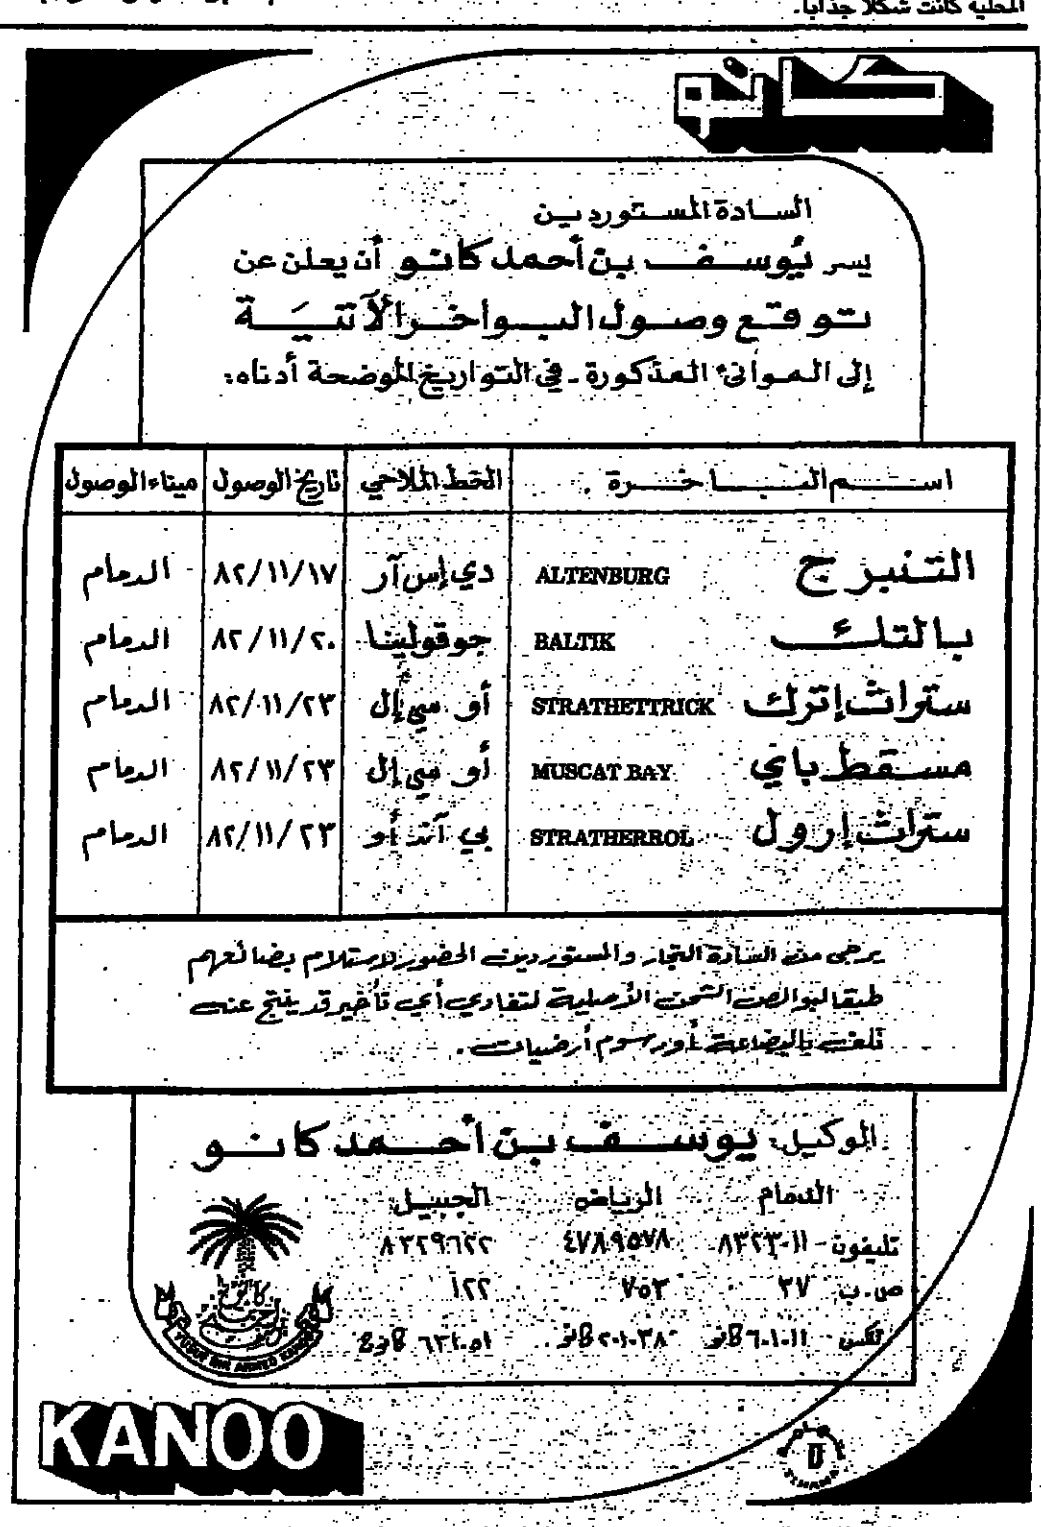 المحلية كانت شكلا جذابا.
كانو
السادة المستوردين
يسر يُوسف بن أحمد كانو أن يعلن عن
توقع وصول البواخر الآتيَة
إلى الموانئ المذكورة - في التواريخ الموضحة أدناه:
اسم الباخرة الخط الملاحي تاريخ الوصول ميناء الوصول
التنبرج ALTENBURG دي إس آر ٨٢/١١/١٧ الدمام
بالتك BALTIK جوقولينا ٨٢/١١/٢٠ الدمام
ستراث إترك STRATHETTRICK أو سي إل ٨٢/١١/٢٣ الدمام
مسقط باي MUSCAT BAY أو سي إل ٨٢/١١/٢٣ الدمام
ستراث إرول STRATHERROL بي آند أو ٨٢/١١/٢٣ الدمام
يرجى من السادة التجار والمستوردين الحضور لاستلام بضائعهم
طبقا لبوالص الشحن الأصلية لتفادي أي تأخير قد ينتج عنه
تلف بالبضاعة أو رسوم أرضيات.
الوكيل: يوسف بن أحمد كانو
الدمام الرياض الجبيل
تليفون - ٨٣٢٣٠١١ ٤٧٨٩٥٧٨ ٨٣٢٩٦٢٢
ص.ب ٣٧ ٧٥٣ ١٢٢
تلكس ٦٠١٠١١ كانو ٢٠١٠٣٨ كانو ٦٣١٠٥١ كانو
YUSUF BIN AHMED KANOO
KANOO